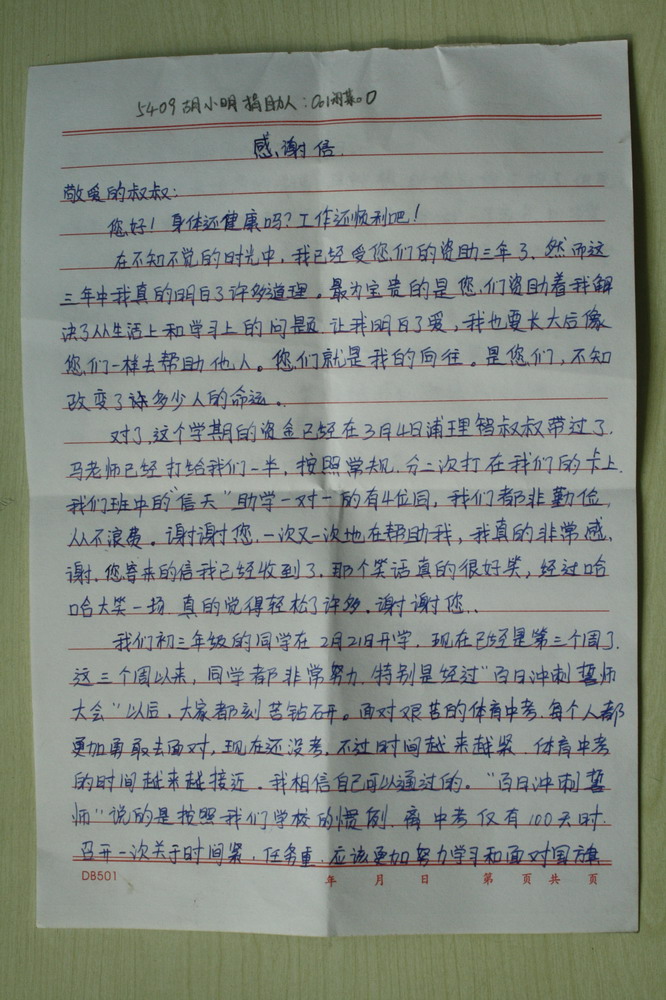 5409 胡小明 捐助人:
感谢信
敬爱的叔叔:
您好!身体还健康吗?工作还顺利吧!
在不知不觉的时光中,我已经受您们的资助三年了.然而这
三年中我真的明白了许多道理。最为宝贵的是您们资助着我解
决了从生活上和学习上的问题 让我明白了爱,我也要长大后像
您们一样去帮助他人。您们就是我的向往。是您们,不知
改变了许多少人的命运。
对了,这个学期的资金已经在3月4日浦理智叔叔带过了.
马老师已经打给我们一半,按照常规.分二次打在我们的卡上.
我们班中的"信天"助学一对一的有4位同,我们都非勤俭,
从不浪费。谢谢您.一次又一次地在帮助我,我真的非常感
谢.您寄来的信我已经收到了.那个笑话真的很好笑,经过哈
哈大笑一场 真的觉得轻松了许多.谢谢您..
我们初三年级的同学在2月21日开学.现在已经是第三个周了.
这三个周以来,同学都非常努力.特别是经过"百日冲刺誓师
大会"以后,大家都刻苦钻研。面对艰苦的体育中考.每个人都
更加勇敢去面对,现在还没考.不过时间越来越紧.体育中考
的时间越来越接近.我相信自己可以通过的。"百日冲刺誓
师"说的是按照我们学校的惯例.离中考仅有100天时.
召开一次关于时间紧.任务重.应该更加努力学习和面对国旗
DB501 年 月 日 第 页 共 页